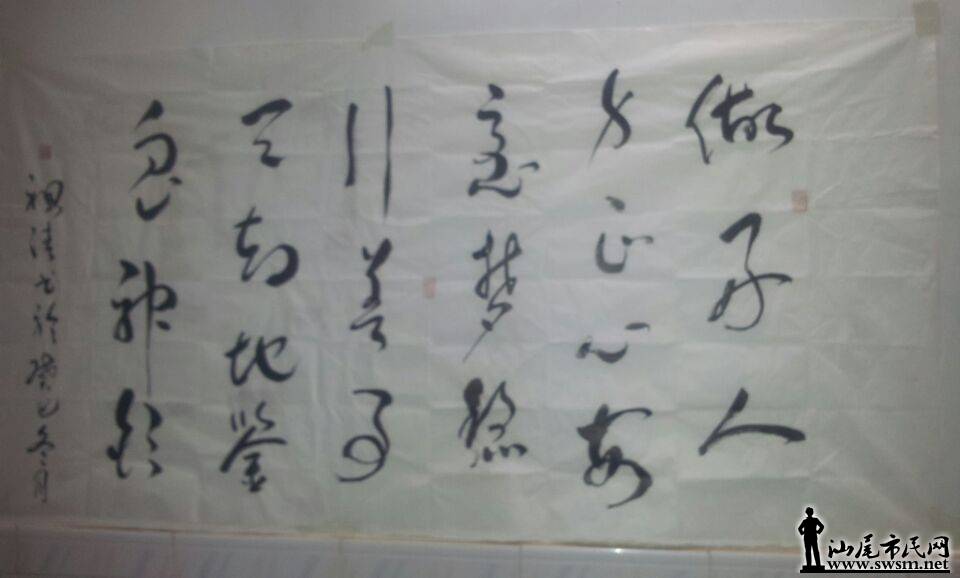 做好人
身正心安
魂梦稳
行善事
天知地鉴
鬼神钦
清书於癸巳冬月
汕尾市民网
www.swsm.net